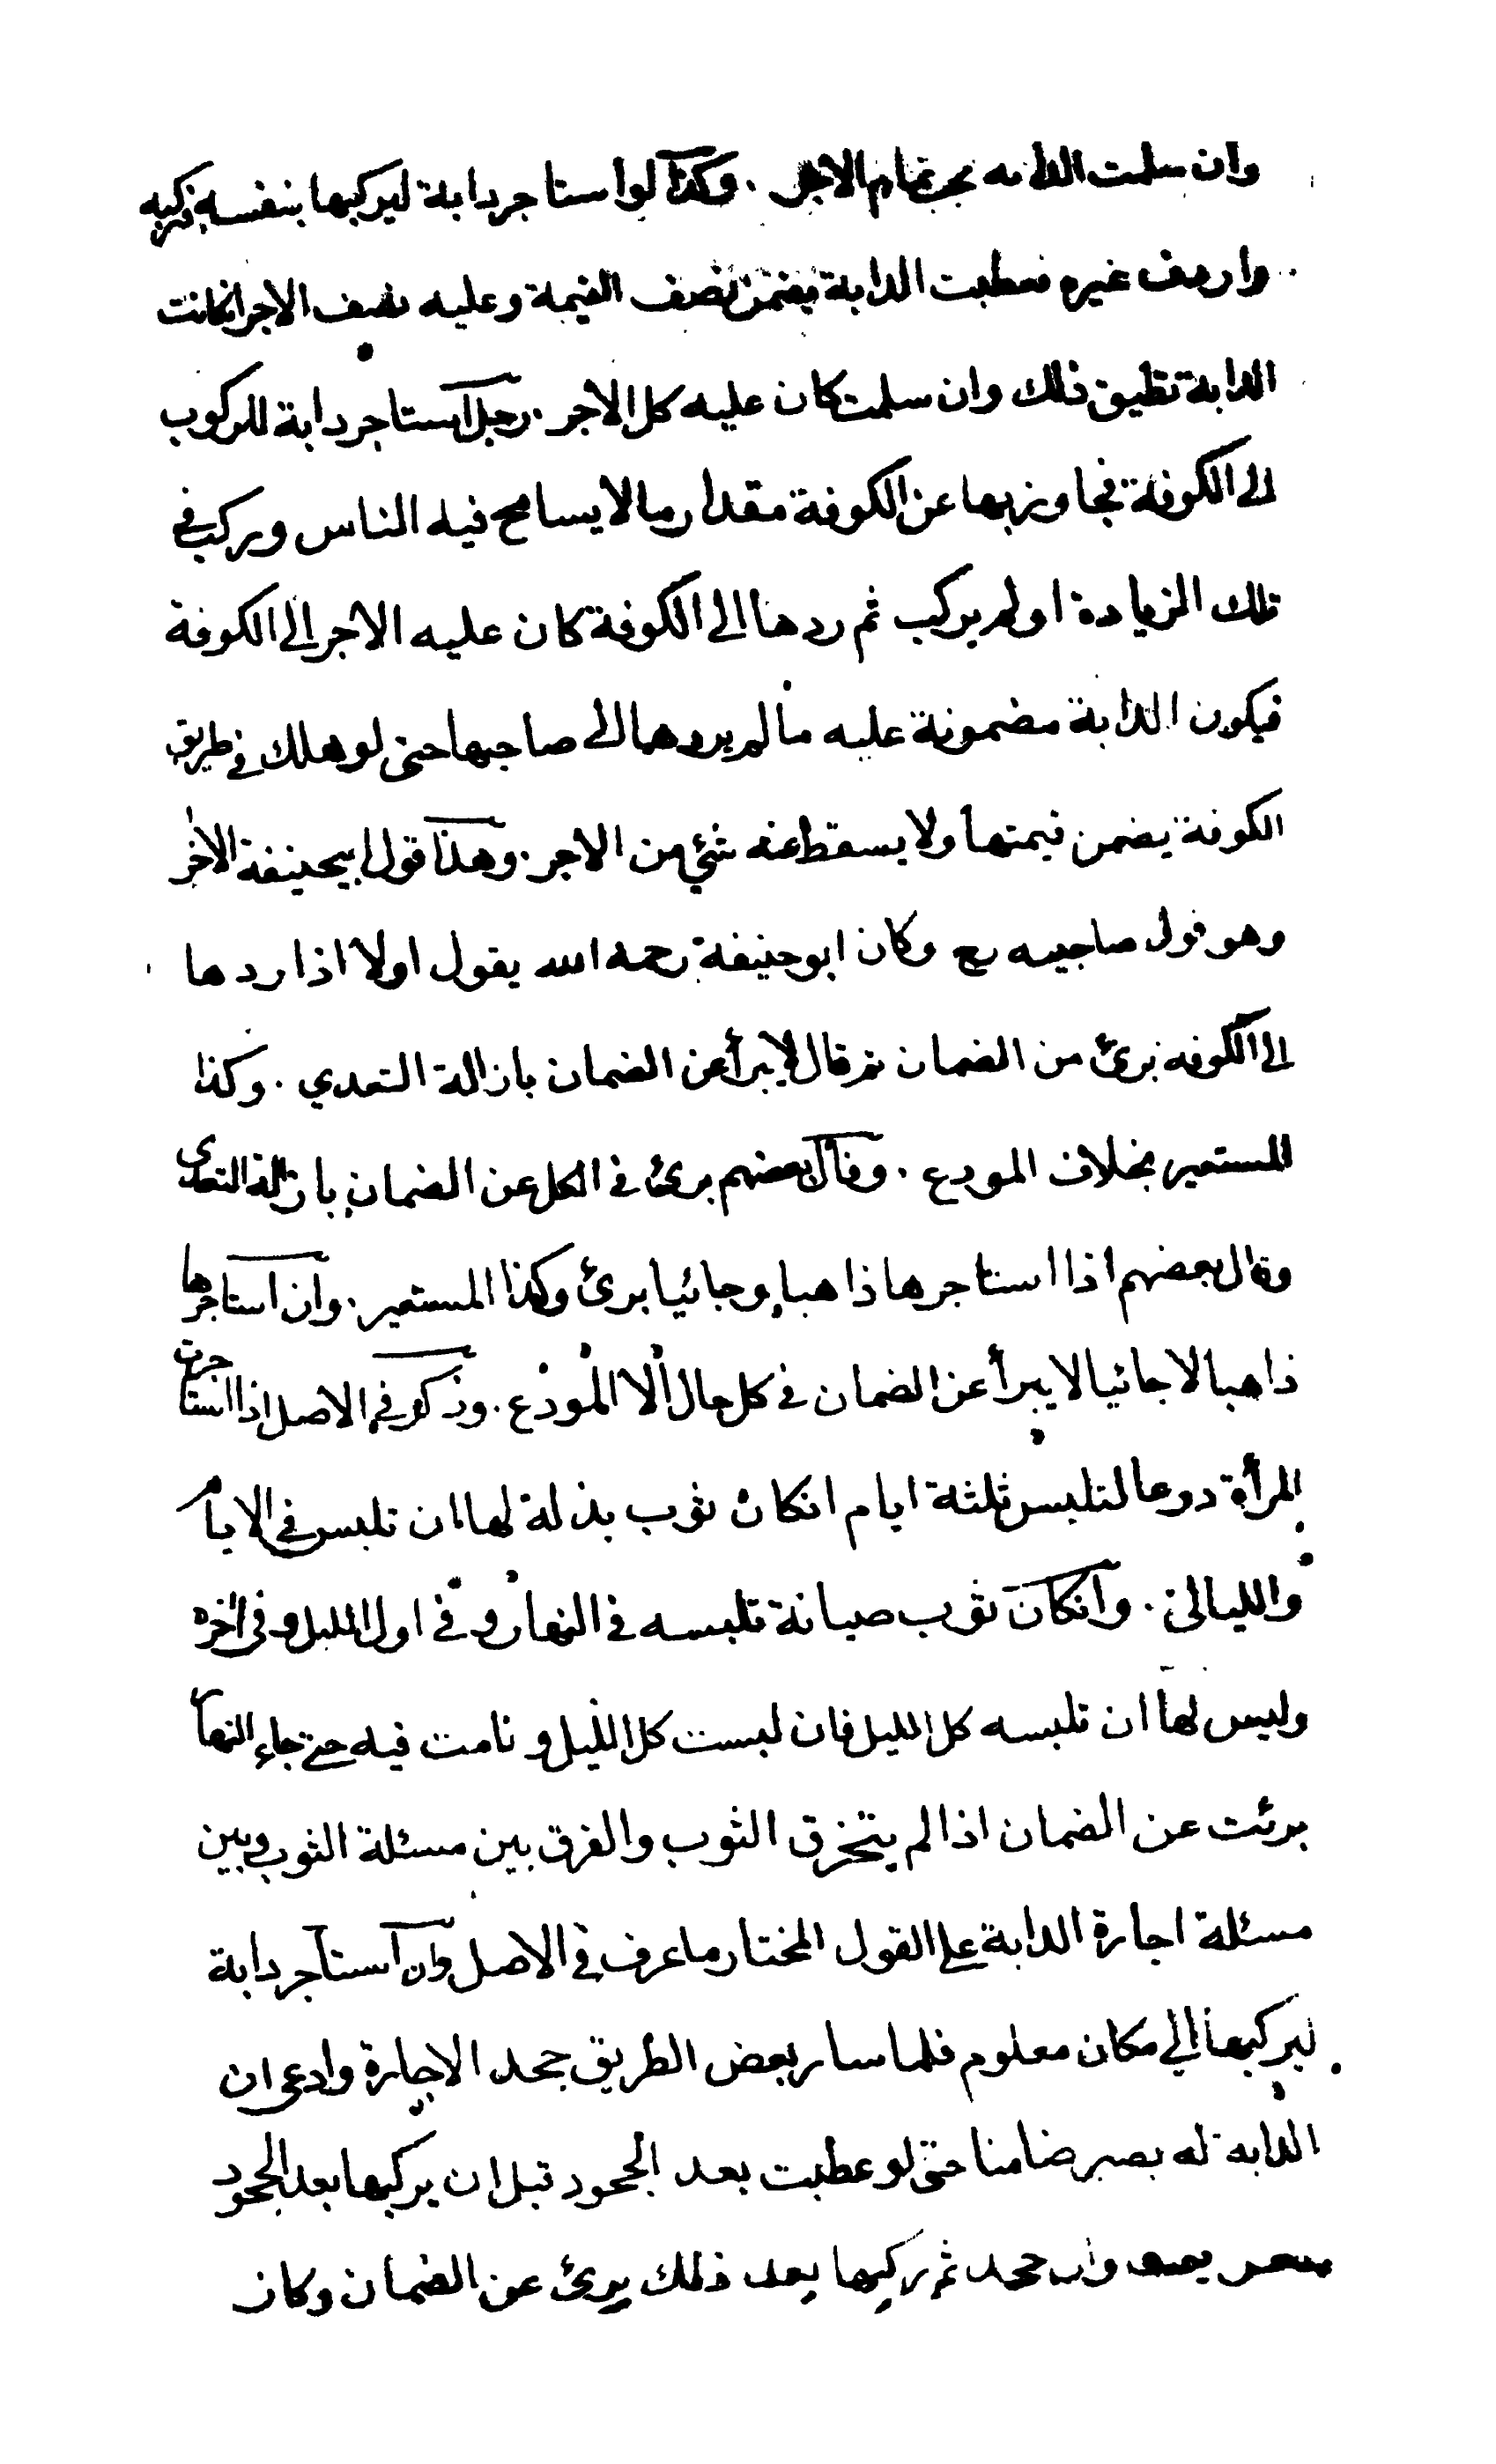 وان سلمت الدابة يجب تمام الاجر . وكذا لو استاجر دابة ليركبها بنفسه فركبه
واردف غيره فعطبت الدابة يضمن نصف القيمة وعليه نصف الاجر انكانت
الدابة تطيق ذلك وان سلمت كان عليه كل الاجر . رجل استاجر دابة للركوب
الى الكوفة فجاوز بها عن الكوفة مقدار ما لا يسامح فيه الناس وركب في
تلك الزيادة او لم يركب ثم ردها الى الكوفة كان عليه الاجر الى الكوفة
فيكون الدابة مضمونة عليه ما لم يردها الى صاحبها حتى لو هلك في طريق
الكوفة يضمن قيمتها ولا يسقط عنه شئ من الاجر . وهذا قول ابيحنيفة الاخر
وهو قول صاحبيه رح وكان ابو حنيفة رحمه الله يقول اولا اذا ردها
الى الكوفه برئ من الضمان ثم قال لا يبرأ عن الضمان بازالة التعدي . وكذا
المستعير بخلاف المودع . وقال بعضهم برئ في الكل عن الضمان بازالة التعدى
وقال بعضهم اذا استاجرها ذاهبا وجائيا برئ وكذا المستعير . وان استاجرها
ذاهبا لا جائيا لا يبرأ عن الضمان في كل حال الا المودع . وذكر في الاصل اذا استاجرت
المرأة درعا لتلبس ثلثة ايام انكان ثوب بذلة لها ان تلبس في الايام
والليالي . وانكان ثوب صيانة تلبسه في النهار وفي اول الليل وفي اخره
وليس لها ان تلبسه كل الليل فان لبست كل الليل ونامت فيه حتى جاء النهار
برئت عن الضمان اذا لم يتخرق الثوب والفرق بين مسئلة الثوب وبين
مسئلة اجارة الدابة على القول المختار ما عرف في الاصل وان استاجر دابة
ليركبها الي مكان معلوم فلما سار بعض الطريق جحد الاجارة وادعى ان
الدابه له يصير ضامنا حتى لو عطبت بعد الجحود قبل ان يركبها بعد الجحود
وان جحد ثم ركبها بعد ذلك يبرئ عن الضمان وكان